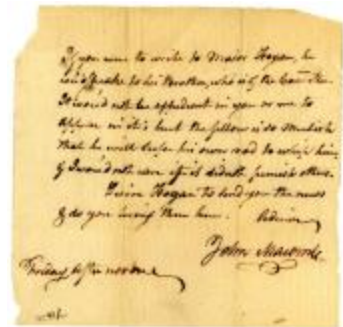 If you were to write to Major Hogan, he
would speake to his Brother, who is of the Committee
It would not be expedient in you or me to
appear in it: but the fellow is so
that he would his own road to him,
& I would not care if it didn't furnish others.
Desire Hogan to send you the news
& do you them here. Adieu
John
Friday after noon